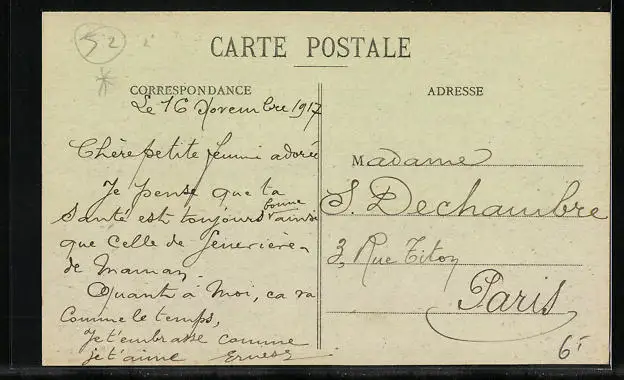 52
CARTE POSTALE
CORRESPONDANCE
Le 16 Novembre 1917
Chère petite femme adorée
Je pense que ta
bonne
Santé est toujours ainsi
que celle de
de Maman.
Quant à Moi, ca va
Comme le temps,
Je t'embrasse comme
je t'aime Ernest
ADRESSE
Madame
S. Dechambre
3, Rue Titon
Paris